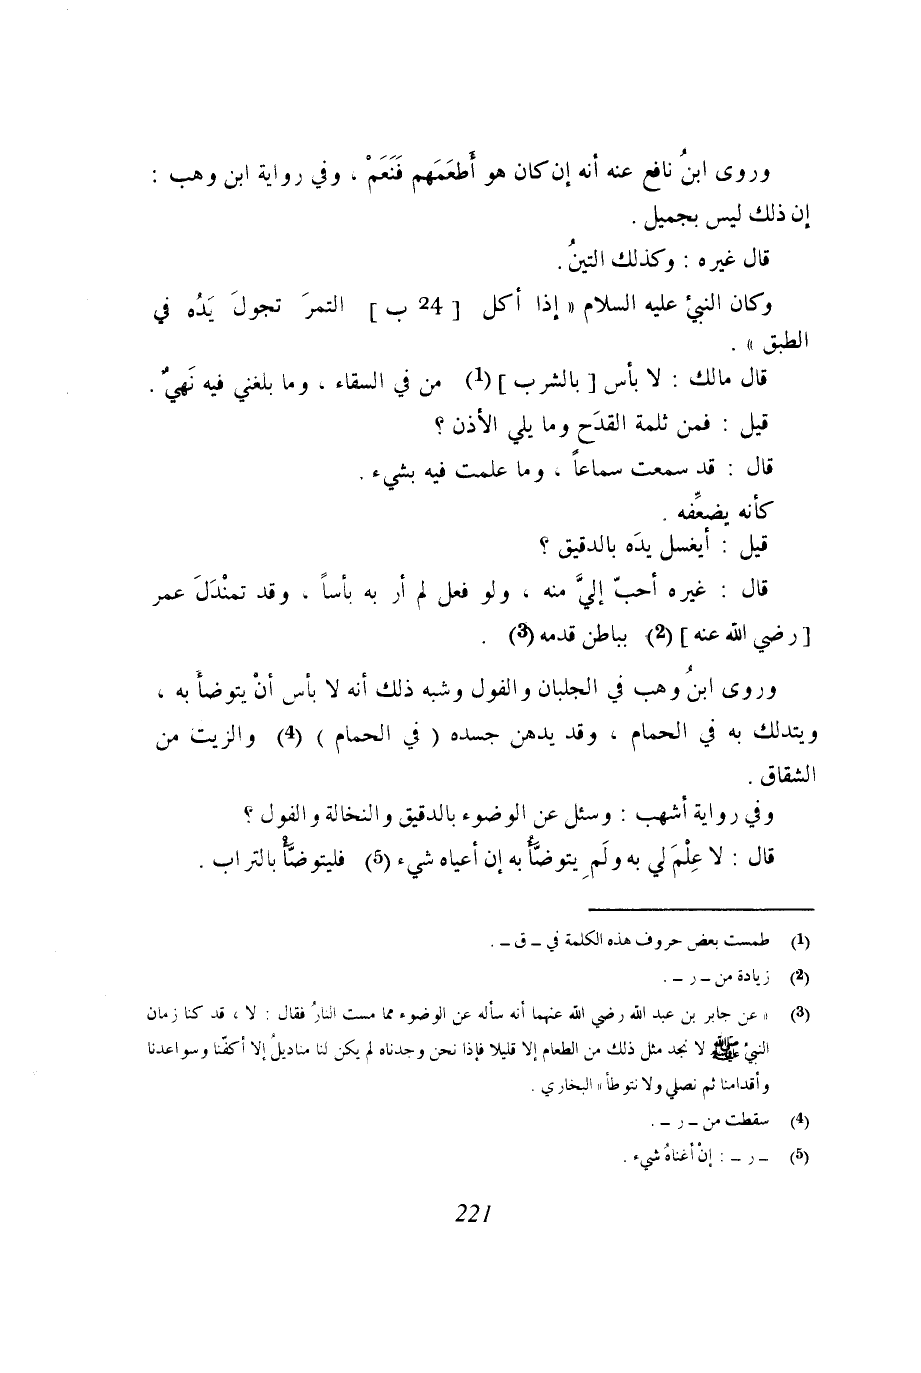 وروى ابنُ نافع عنه أنه إن كان هو أَطعَمَهم فَنَعَمْ ، وفي رواية ابن وهب :
إن ذلك ليس بجميل .
قال غيره : وكذلك التينُ .
وكان النبيُ عليه السلام « إذا أكل [ 24 ب ] التمرَ تجولَ يَدُه في
الطبق » .
قال مالك : لا بأس [ بالشرب ] (1) من في السقاء ، وما بلغني فيه نَهيٌ .
قيل : فمن ثلمة القدَح وما يلي الأذن ؟
قال : قد سمعت سماعاً ، وما علمت فيه بشيء .
كأنه يضعِّفه .
قيل : أيغسل يدَه بالدقيق ؟
قال : غيره أحبّ إليَّ منه ، ولو فعل لم أر به بأساً ، وقد تمنْدَلَ عمر
[ رضي الله عنه ] (2) بباطن قدمه (3) .
وروى ابنُ وهب في الجلبان والفول وشبه ذلك أنه لا بأس أنْ يتوضأ به ،
ويتدلك به في الحمام ، وقد يدهن جسده ( في الحمام ) (4) والزيت من
الشقاق .
وفي رواية أشهب : وسئل عن الوضوء بالدقيق والنخالة والفول ؟
قال : لا عِلْمَ لي به ولَم يتوضَّأُ به إن أعياه شيء (5) فليتوضَّأْ بالتراب .
(1) طمست بعض حروف هذه الكلمة في – ق – .
(2) زيادة من – ر – .
(3) « عن جابر بن عبد الله رضي الله عنهما أنه سأله عن الوضوء مما مست النارُ فقال : لا ، قد كنا زمان
النبيّ ﷺ لا نجد مثل ذلك من الطعام إلا قليلا فإذا نحن وجدناه لم يكن لنا مناديلُ إلا أكفّنا وسواعدنا
وأقدامنا ثم نصلي ولا نتوطأ » البخاري .
(4) سقطت من – ر – .
(5) – ر – : إنْ أغناهُ شيء .
221